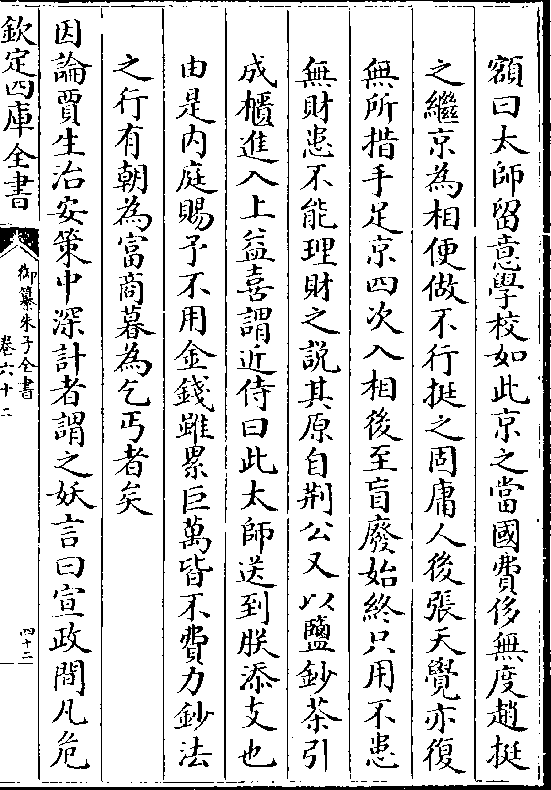 額曰太師留意學校如此京之當國費侈無度趙挺
之繼京為相便做不行挺之固庸人後張天覺亦復
無所措手足京四次入相後至盲廢始終只用不患
無財患不能理財之說其原自荆公又以鹽鈔茶引
成櫃進入上益喜謂近侍曰此太師送到朕添支也
由是内庭賜予不用金錢雖累巨萬皆不費力鈔法
之行有朝為富商暮為乞丐者矣
因論賈生治安策中深計者謂之妖言曰宣政間凡危
欽定四庫全書
御纂朱子全書
卷六十二
四十二